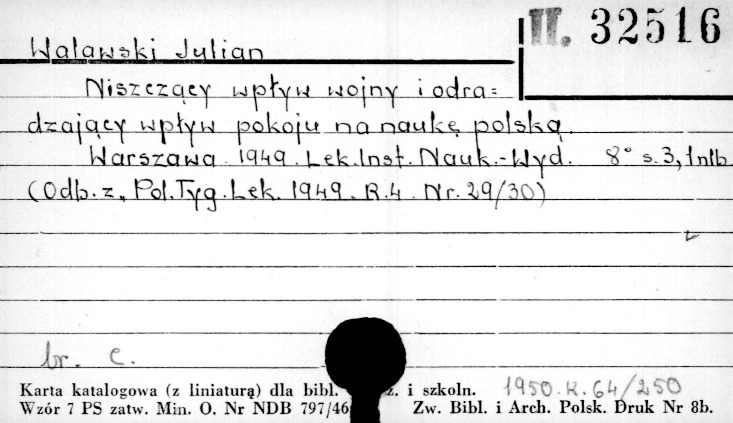 II. 32516
Walawski Julian
Niszczący wpływ wojny i odra=
dzający wpływ pokoju na naukę polską.
Warszawa 1949. Lek. Inst. Nauk.-Wyd. 8° s. 3, 1 nlb
(Odb. z „Pol. Tyg. Lek. 1949. R. 4. Nr. 29/30)
br. c.
Karta katalogowa (z liniaturą) dla bibl. z. i szkoln. 1950. K. 64/250
Wzór 7 PS zatw. Min. O. Nr NDB 797/46 Zw. Bibl. i Arch. Polsk. Druk Nr 8b.